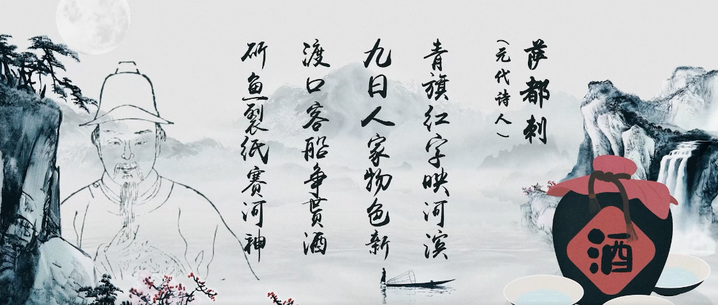 萨都刺
(元代诗人)
青旗红字映河滨
九日人家物色新
渡口客船争贳酒
斫鱼裂纸赛河神
酒